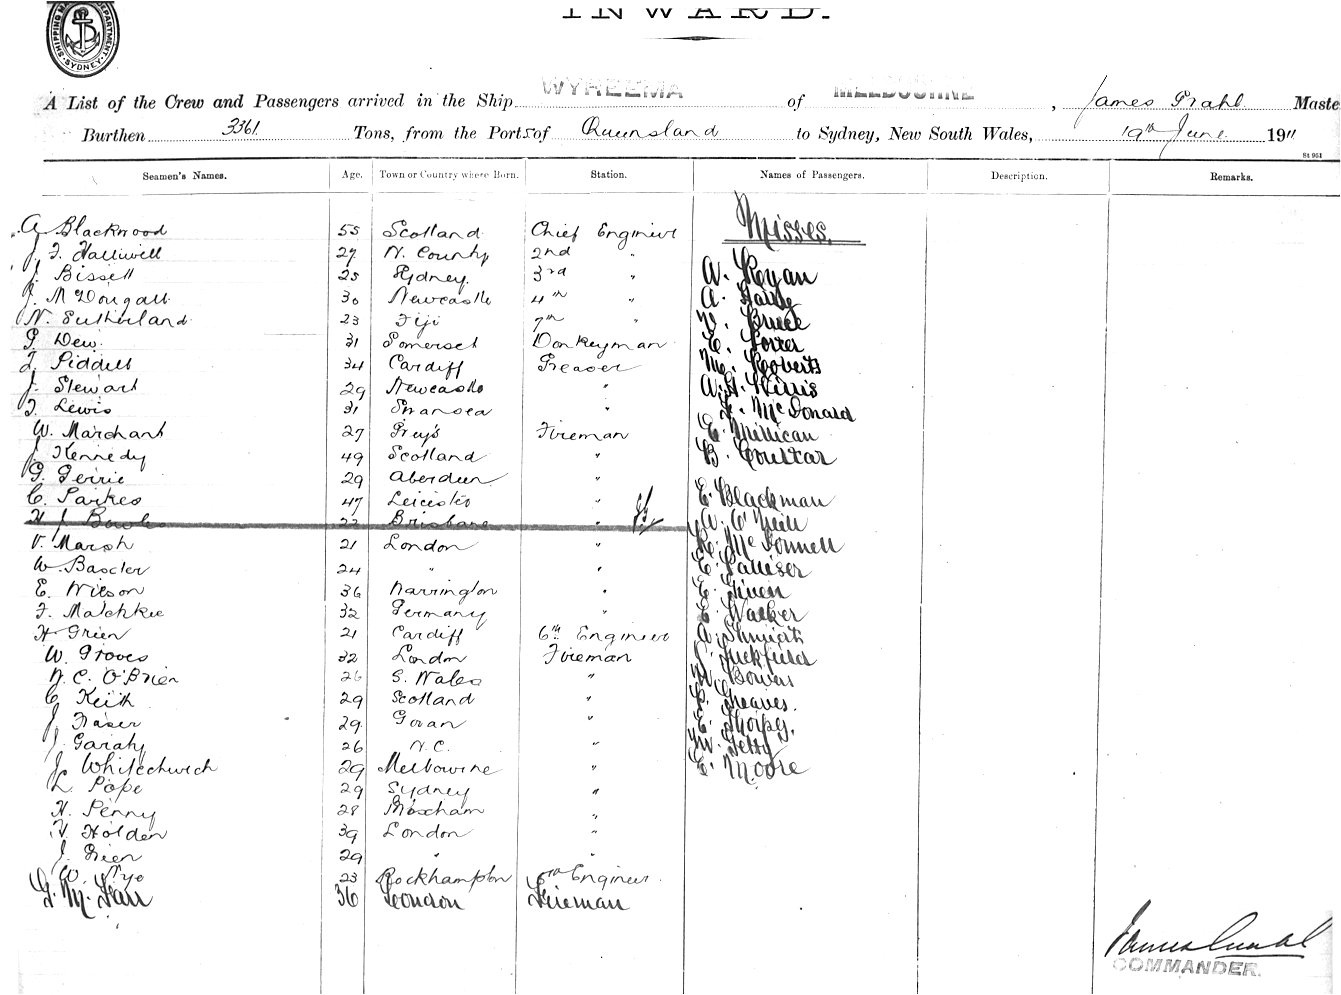 INWARD.
SHIPPING MA DEPARTMENT SYDNEY
A List of the Crew and Passengers arrived in the Ship WYREEMA of MELBOURNE, James Prahl Maste
Burthen 3361 Tons, from the Ports of Queensland to Sydney, New South Wales, 19th June 1911
St 961
Seamen's Names. Age. Town or Country where Born. Station. Names of Passengers. Description. Remarks.
Misses.
A Blackwood 55 Scotland Chief Engineer
J. F. Halliwell 27 N. County 2nd "
J. Bissett 25 Sydney 3rd " A. Ryan
J. McDougall 30 Newcastle 4th " A.
N. Sutherland 23 Fiji 7th " Bruce
Dew. 31 Somerset Donkeyman E. Porter
34 Cardiff Greaser Roberts
J. Stewart 29 Newcastle " A. H. Willis
Lewis 31 Swansea " McDonald
W. Marchant 27 Grays Fireman E. Millican
J. Kennedy 49 Scotland " B. Coultar
G. Gerrie 29 Aberdeen "
C. Parkes 47 Leicester " E. Blackman
H J Bowles 22 Brisbane " A. O'Neill
V. Marsh 21 London " McDonnell
W. Baxter 24 " " E. Palliser
E. Wilson 36 Warrington " E. Given
F. 32 Germany " E Walker
H Green 21 Cardiff 6th Engineer A.
W. Groves 32 London Fireman Tuckfield
C. O'Brien 26 S. Wales " Bowers
C Keith 29 Scotland " Greaves.
J Fraser 29. Govan " E.
J. Garahy 26 N.C. " Jetty
J. Whitechurch 29 Melbourne " E. Moore
L. Pope 29 Sydney "
H. Penny 28 "
H. Holden 39 London "
J. Green 29 " "
W. Nye 23 Rockhampton Engineer.
G. M. 36 London Fireman
James Prahl
COMMANDER.